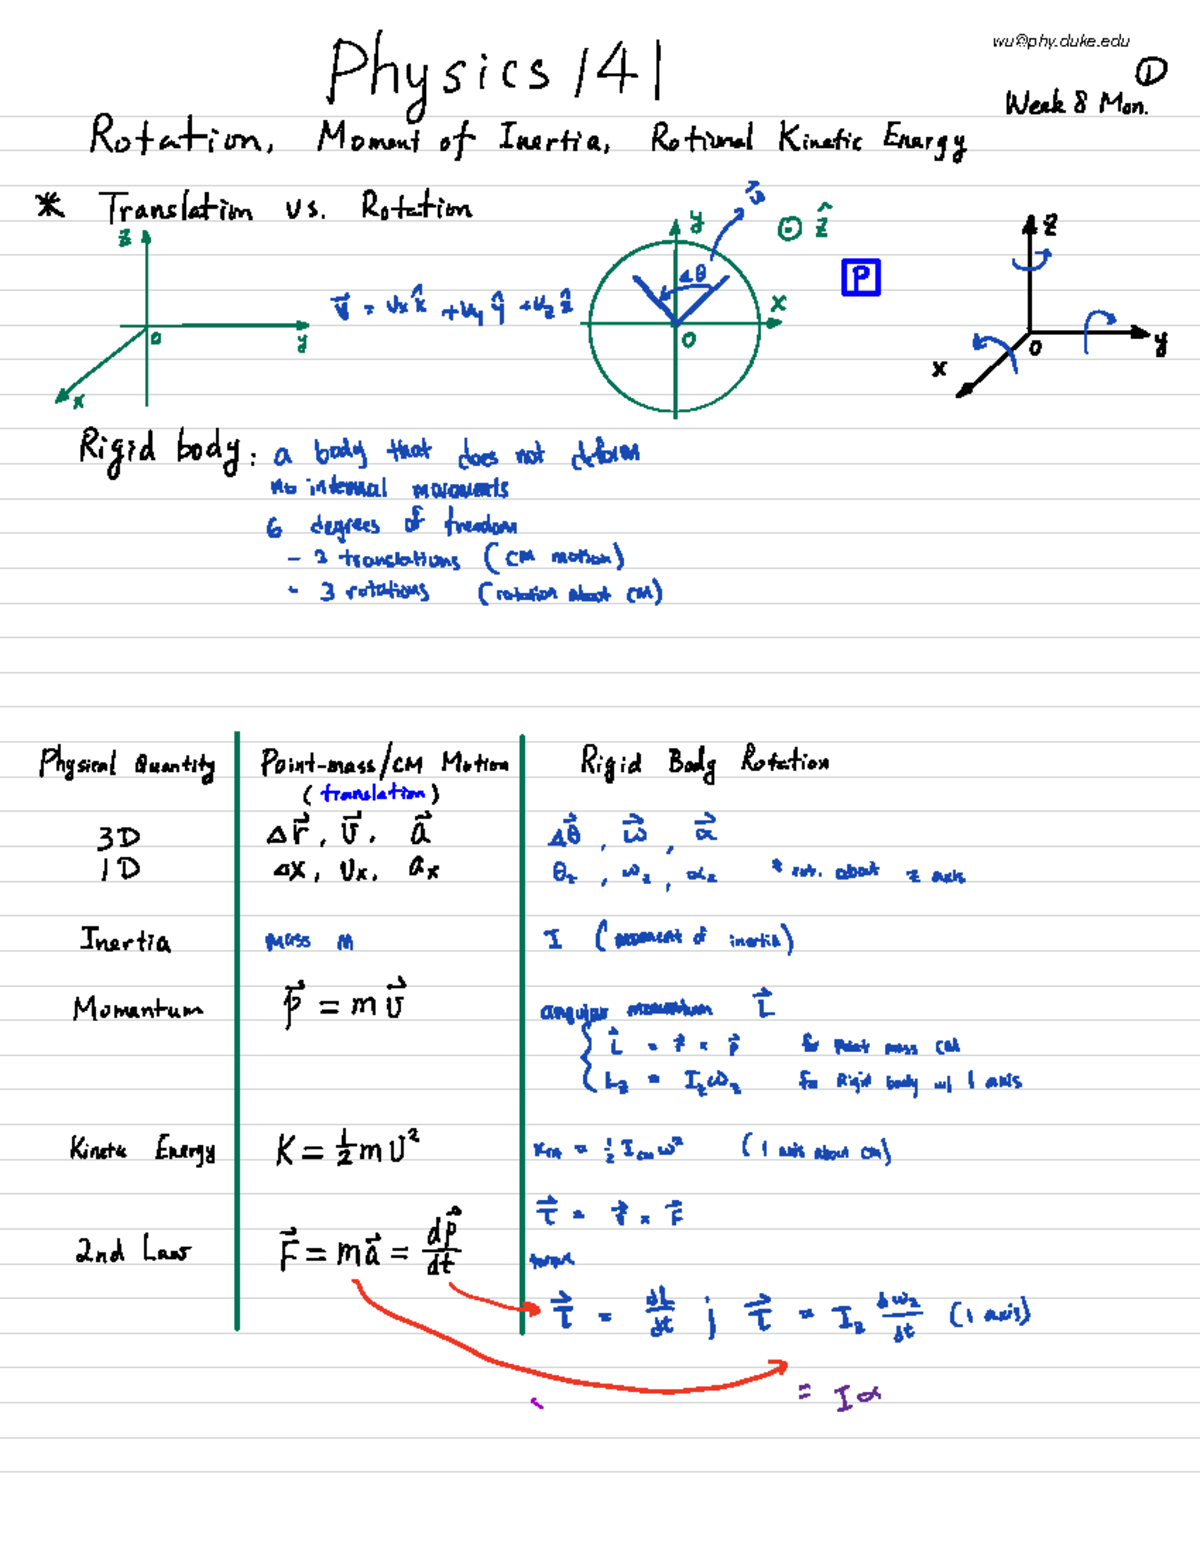 wu@phy.duke.edu
Physics 141
①
Week 8 Mon.
Rotation, Moment of Inertia, Rotional Kinetic Energy
* Translation vs. Rotation
z
0
y
x
v⃗ = vₓx̂ + v_y ŷ + v_z ẑ
y
ω⃗
Δθ
x
0
⊙ ẑ
P
z
0
y
x
Rigid body: a body that does not deform
no internal movements
6 degrees of freedom
- 3 translations (CM motion)
- 3 rotations (rotation about CM)
Physical Quantity Point-mass/CM Motion Rigid Body Rotation
(translation)
3D Δr⃗, v⃗, a⃗ Δθ⃗, ω⃗, α⃗
1D Δx, vₓ, aₓ θ_z, ω_z, α_z * rot. about z axis
Inertia mass m I (moment of inertia)
Momentum p⃗ = mv⃗ angular momentum L⃗
L⃗ = r⃗ × p⃗ for point mass
L_z = I_z ω_z for Rigid body w/ 1 axis
Kinetic Energy K = ½mv² K_rot = ½ I_cm ω² (1 axis about CM)
τ⃗ = r⃗ × F⃗
2nd Law F⃗ = ma⃗ = dp⃗/dt torque
τ⃗ = dL/dt ; τ⃗ = I_z dω_z/dt (1 axis)
= Iα